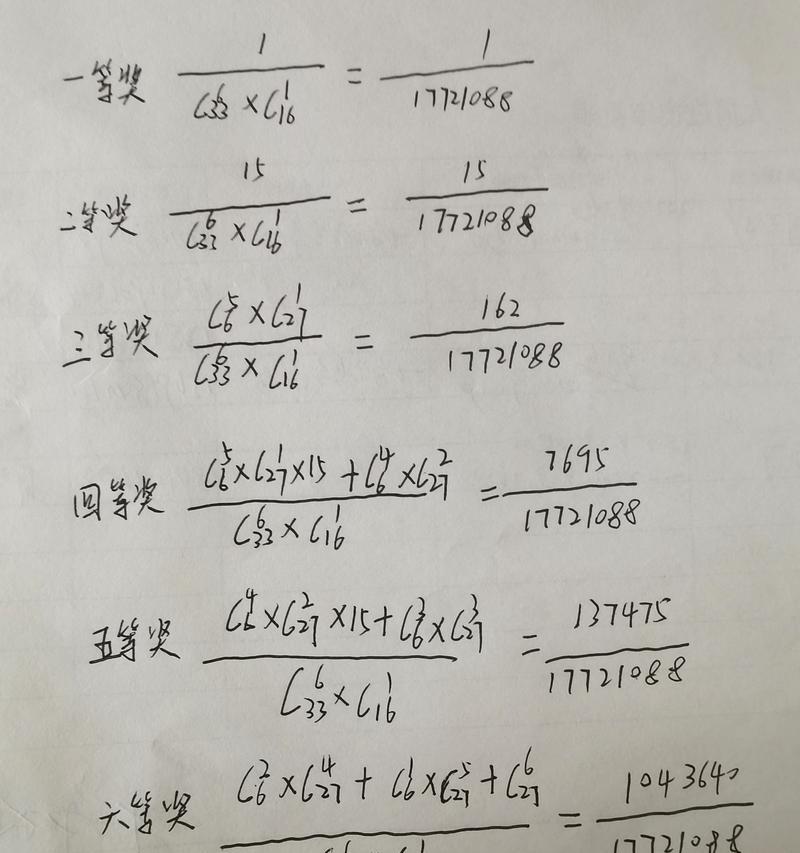 一等奖 1/(C₃₃⁶ × C₁₆¹) = 1/17721088
二等奖 15/(C₃₃⁶ × C₁₆¹) = 15/17721088
三等奖 (C₆⁵ × C₂₇¹)/(C₃₃⁶ × C₁₆¹) = 162/17721088
四等奖 (C₆⁵ × C₂₇¹ × 15 + C₆⁴ × C₂₇²)/(C₃₃⁶ × C₁₆¹) = 7695/17721088
五等奖 (C₆⁴ × C₂₇² × 15 + C₆³ × C₂₇³)/(C₃₃⁶ × C₁₆¹) = 137475/17721088
六等奖 (C₆² × C₂₇⁴ + C₆¹ × C₂₇⁵ + C₂₇⁶) = 1043640/17721088